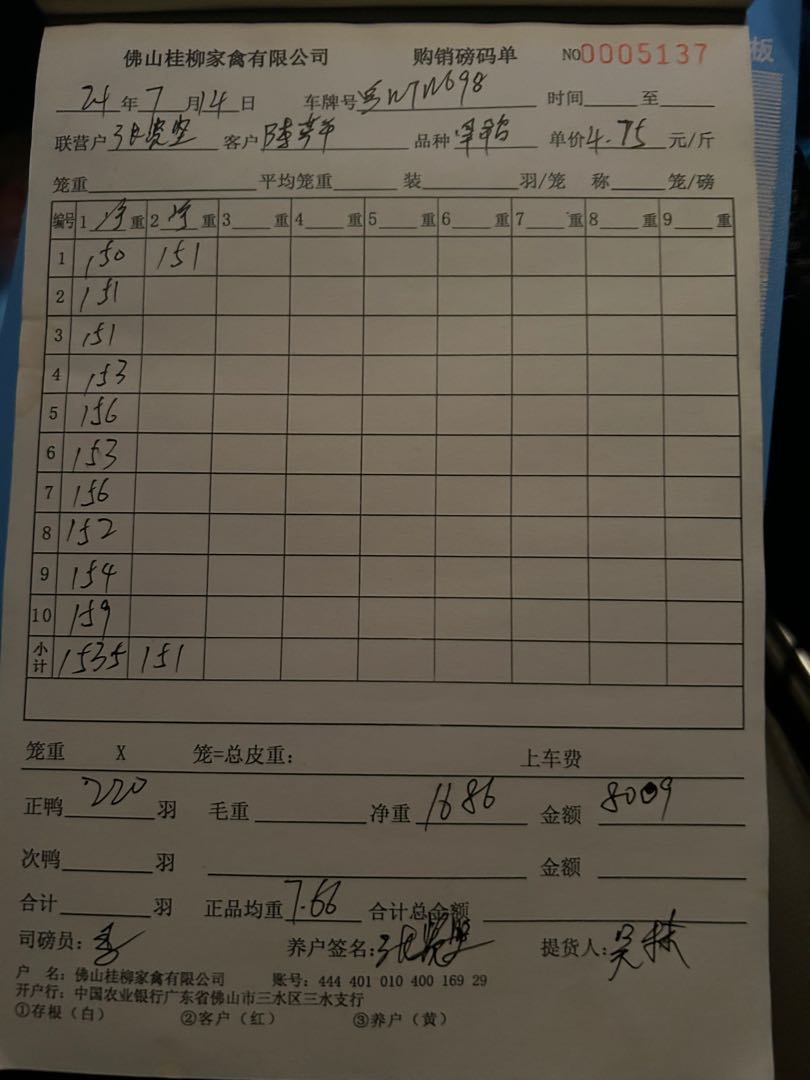 佛山桂柳家禽有限公司 购销磅码单 NO0005137
24年7月14日 车牌号 时间 至
联营户 客户 品种 单价4.75元/斤
笼重 平均笼重 装 羽/笼 称 笼/磅
编号 1净重 2净重 3重 4重 5重 6重 7重 8重 9重
1 150 151
2 151
3 151
4 153
5 156
6 153
7 156
8 152
9 154
10 159
小计 1535 151
笼重 X 笼=总皮重： 上车费
正鸭220羽 毛重 净重1686 金额8009
次鸭 羽 金额
合计 羽 正品均重7.66 合计总金额
司磅员： 养户签名： 提货人：
户 名：佛山桂柳家禽有限公司 账号：444 401 010 400 169 29
开户行：中国农业银行广东省佛山市三水区三水支行
①存根（白） ②客户（红） ③养户（黄）
板